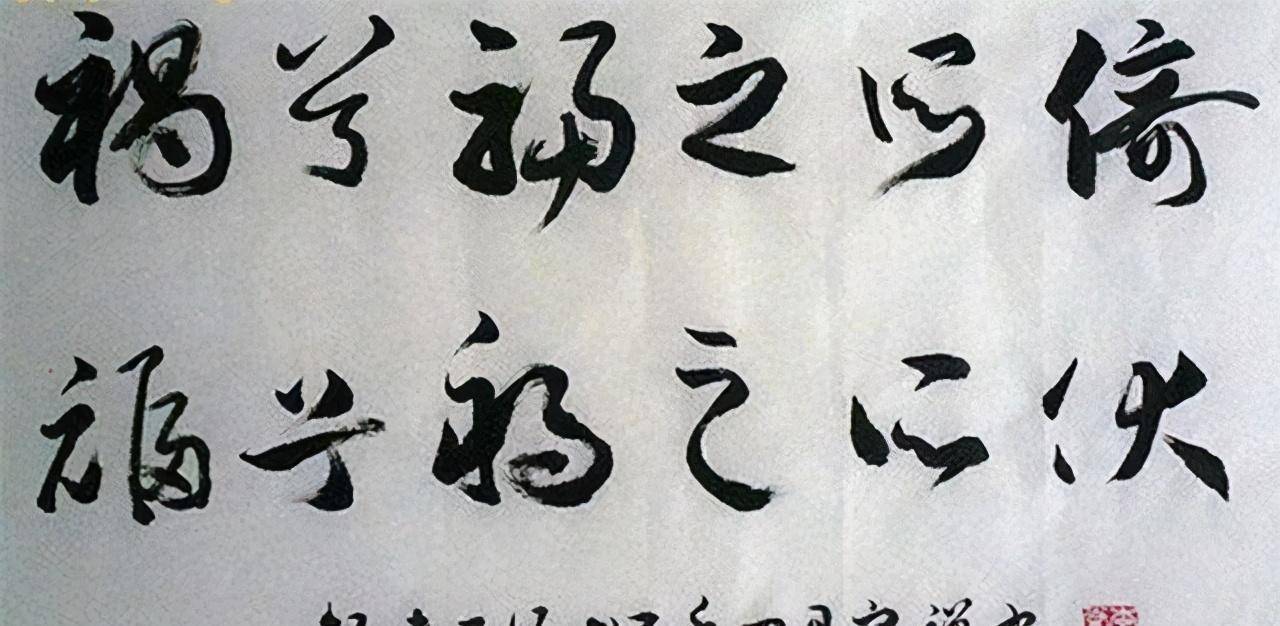 禍兮福之所倚
福兮禍之所伏